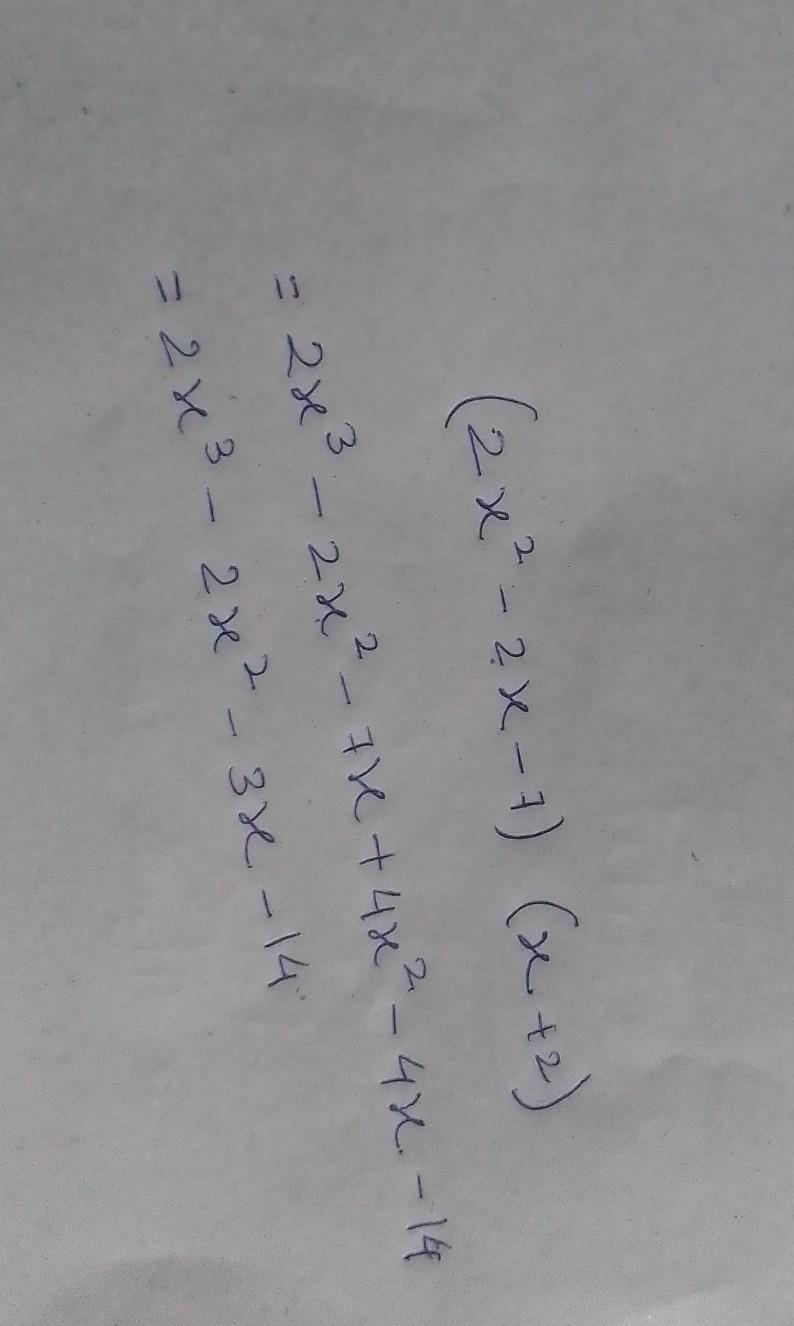 (2x² - 2x - 7) (x + 2)
= 2x³ - 2x² - 7x + 4x² - 4x - 14
= 2x³ - 2x² - 3x - 14